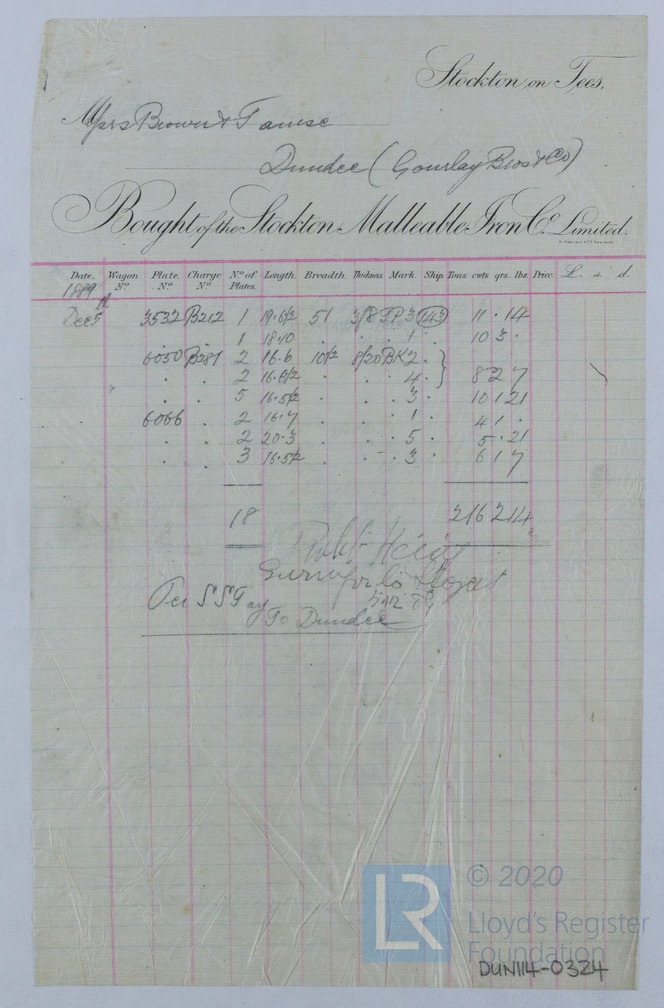 Stockton on Tees.
Messrs Brown & Tawse
Dundee (Gourlay Bros & Co)
Bought of the Stockton Malleable Iron Co. Limited.
Date. Wagon No. Plate. No. Charge No. No. of Plates. Length. Breadth. Thickness Mark. Ship. Tons. cwts qrs. lbs. Price. £ s. d.
1889
Dec 5th 3532 B212 1 19.6½ 51 3/8 TP 3 (143) 11 . 14
1 18.10 . . . 1 . 10 3 .
6050 B281 2 16.6 10½ 8/20 BK 2 .
. . 2 16.6½ . . . 4 . 8 2 7
. . 5 16.5½ . . . 3 . 10 1 21
6066 . 2 16.7 . . . 1 . 4 1 .
. . 2 20.3 . . . 5 . 5 . 21
. . 3 16.5½ . . . 3 . 6 1 7
18 2 16 2 14
Per SS Tay
To Dundee
© 2020
LR
Lloyd's Register
Foundation
DUN114-0324